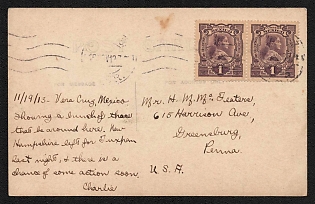 11/19/13 - Vera Cruz, Mexico
Showing a bunch of those
that be around here. New
Hampshire left for Tuxpan
last night, & there is a
chance of some action soon,
Charlie
Mr. H. M. McFeaters,
615 Harrison Ave,
Greensburg,
Penna.
U.S.A.
1 1